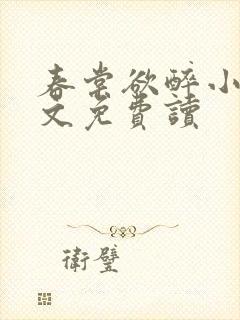 春棠欲醉小
文免費讀
衛璧